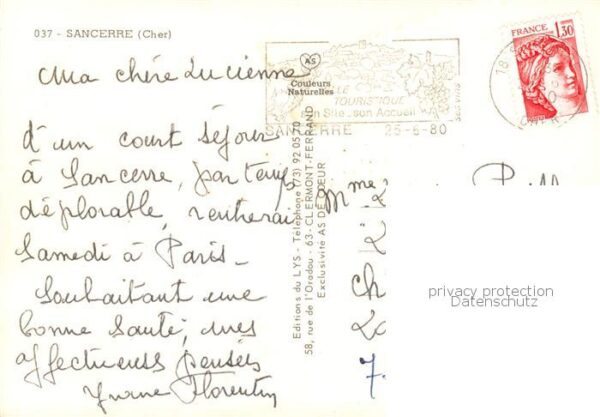 037 - SANCERRE (Cher)
Ma chère Lucienne
d'un court séjour
à Sancerre, par temps
déplorable, rentrerai
Samedi à Paris -
Souhaitant une
bonne santé, mes
affectueuses pensées
Yvonne Florentin
AS
Couleurs
Naturelles
Editions du LYS - Téléphone (73) 92 05 70
58, rue de l'Oradou - 63 - CLERMONT-FERRAND
Exclusivité AS DE CŒUR
TOURISTIQUE
son Site.. son Accueil
SES VINS
SANCERRE 25-6-80
18
FRANCE 1,30
Mme
privacy protection
Datenschutz